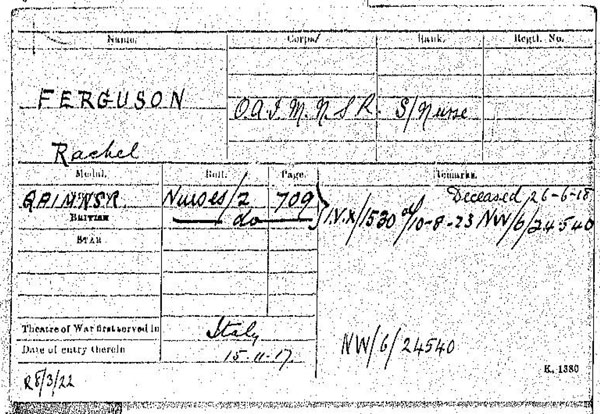 Name. Corps. Rank. Regtl. No.
FERGUSON Q.A.I.M.N.S.R. S/Nurse
Rachel
Medal. Roll. Page. Remarks.
Deceased 26-6-18
QAIMNSR Nurses/2 709 } I.V.X/1530 of 10-8-23 NW/6/24540
BRITISH — do —
STAR
Theatre of War first served in Italy
Date of entry therein 15-11-17.
NW/6/24540
K. 1380